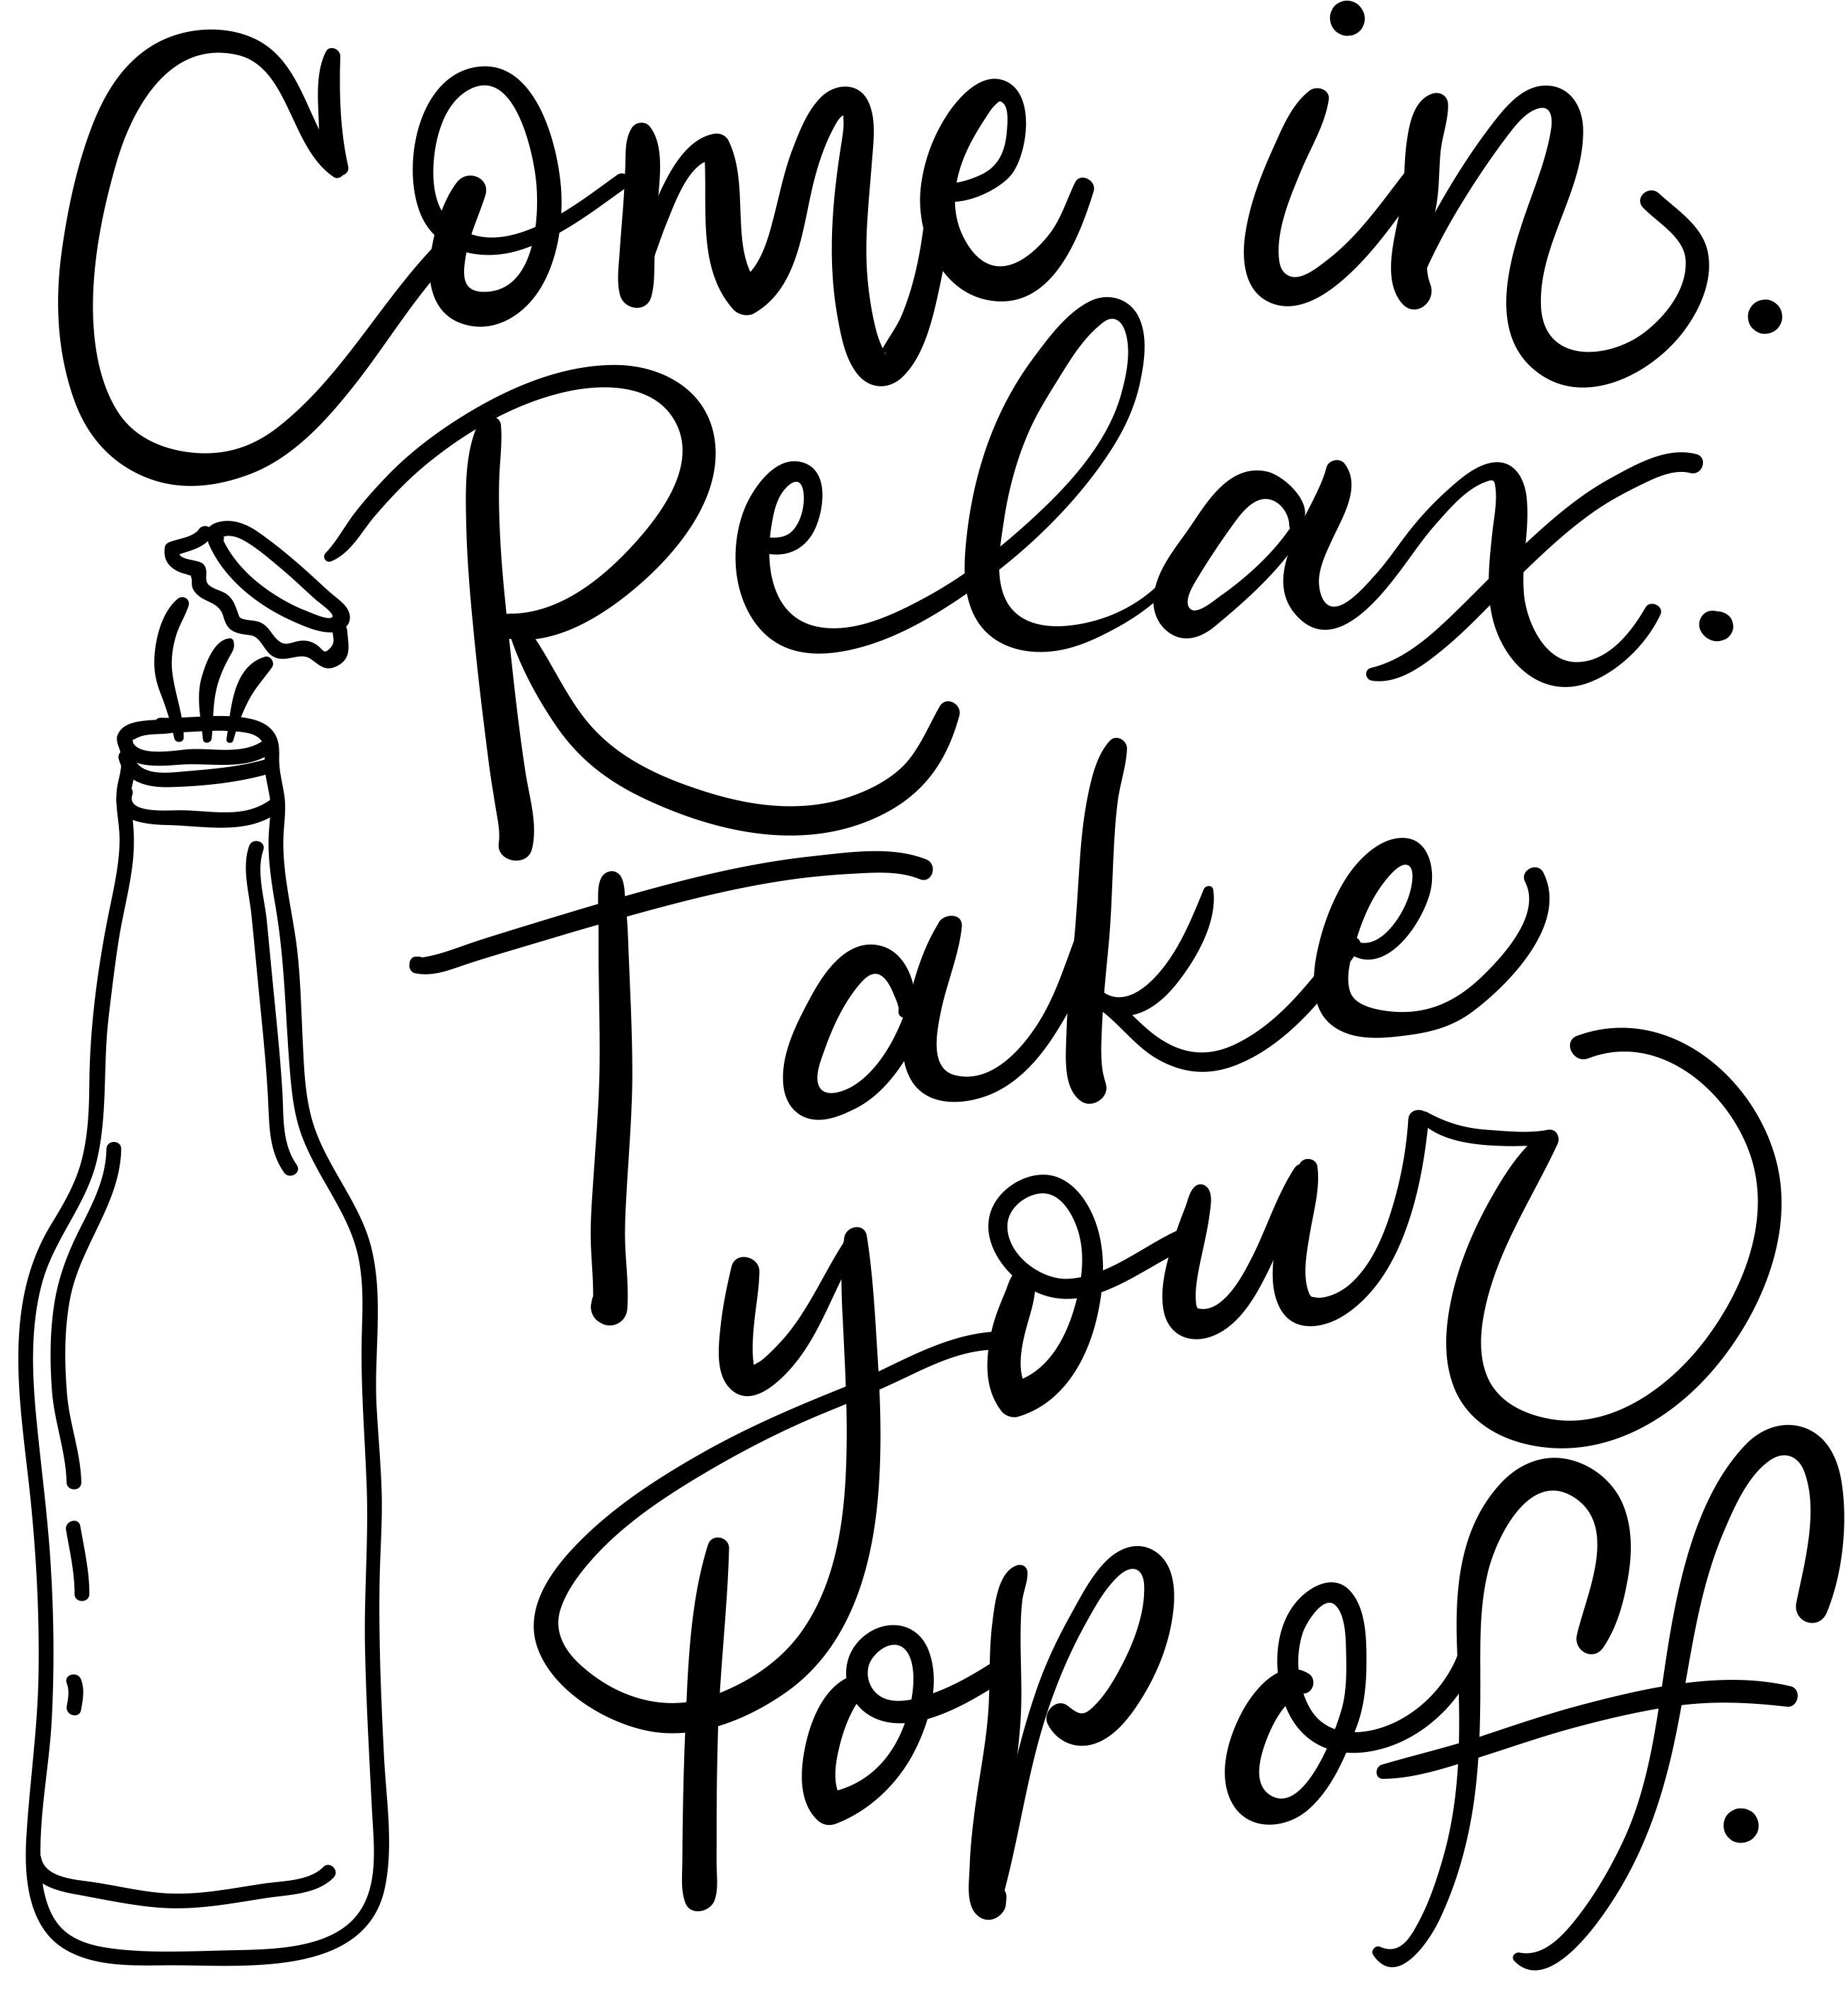 Come in.
Relax.
Take
your
pop off.